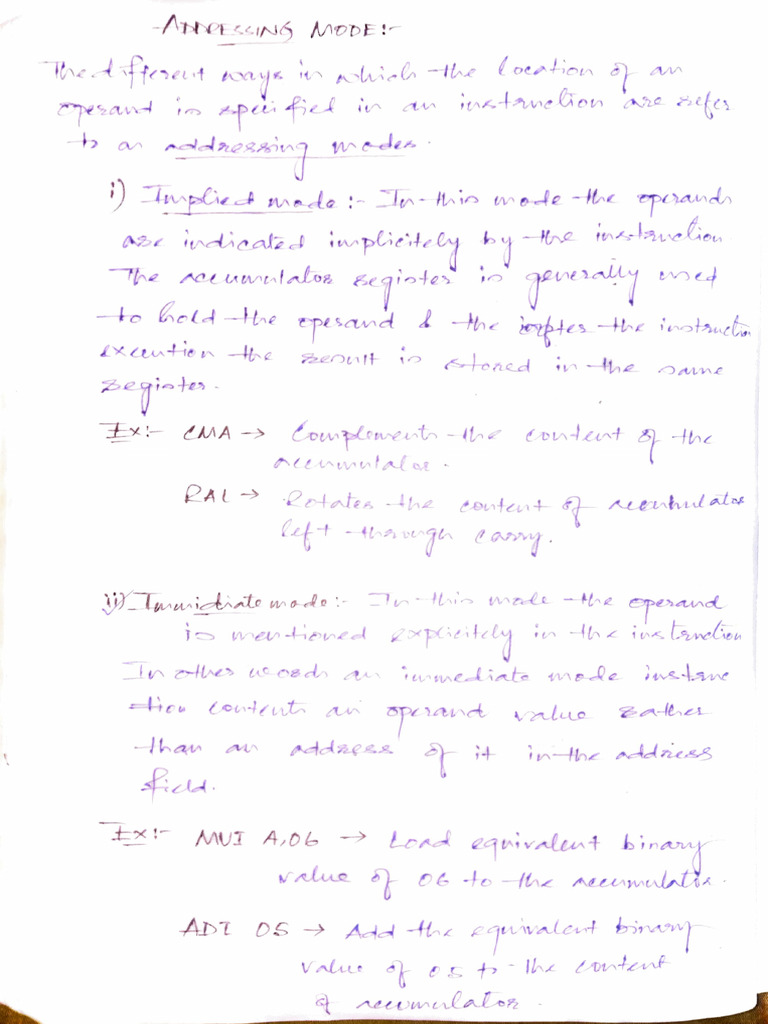 ADDRESSING MODE:-
The different ways in which the location of an
operant is specified in an instruction are refer
to an addressing modes.
i) Implict mode :- In this mode the operands
are indicated implicitely by the instruction.
The accumulator register is generally used
to hold the operand & the after the instruction
execution the result is stored in the same
register.
Ex:- CMA → Complements the content of the
accumulator.
RAL → Rotates the content of accumulator
left through carry.
ii) Immidiate mode:- In this mode the operand
is mentioned explicitely in the instruction
In other words an immediate mode instruc
-tion contents an operand value rather
than an address of it in the address
field.
Ex:- MVI A,06 → Load equivalent binary
value of 06 to the accumulator.
ADI 05 → Add the equivalent binary
value of 05 to the content
of accumulator.